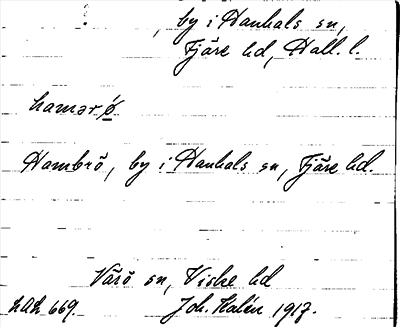 ?, by i Hanhals sn,
Fjäre hd, Hall. l.
hamərø̄́
Hambrö, by i Hanhals sn, Fjäre hd.
Värö sn, Viske hd
hlh 669. Joh. Kalén 1917.